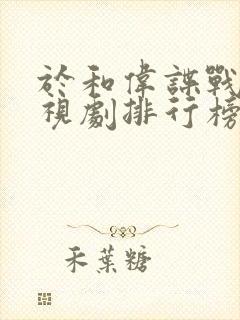 於和偉諜戰
視劇排行榜
禾葉糖